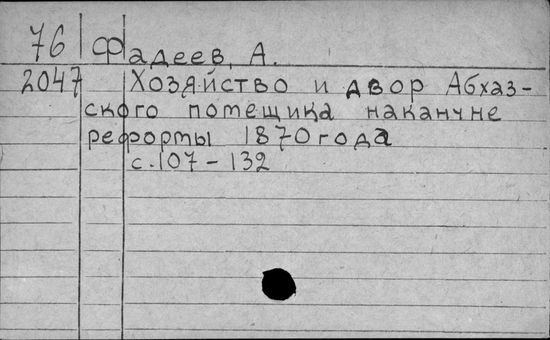 76 Фадеев, А.
2047 Хозяйство и двор Абхаз-
ского помещика накануне
реформы 1870 года
с. 107 - 132